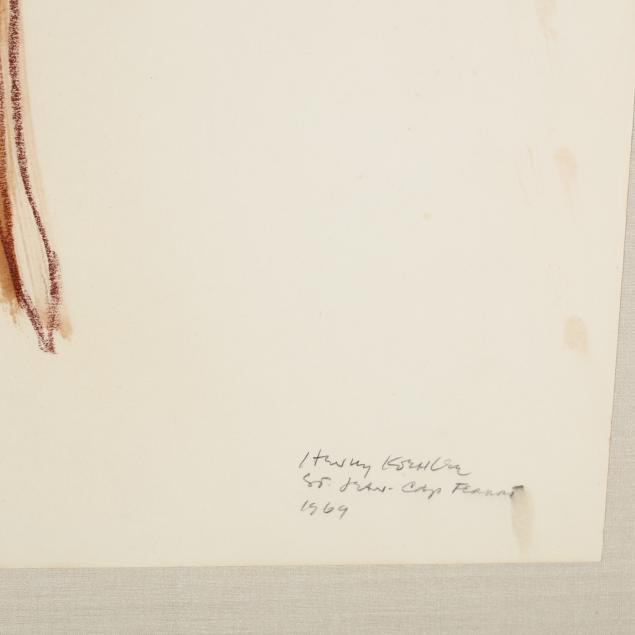 Henry Koehler
St. Jean-Cap Ferrat
1969